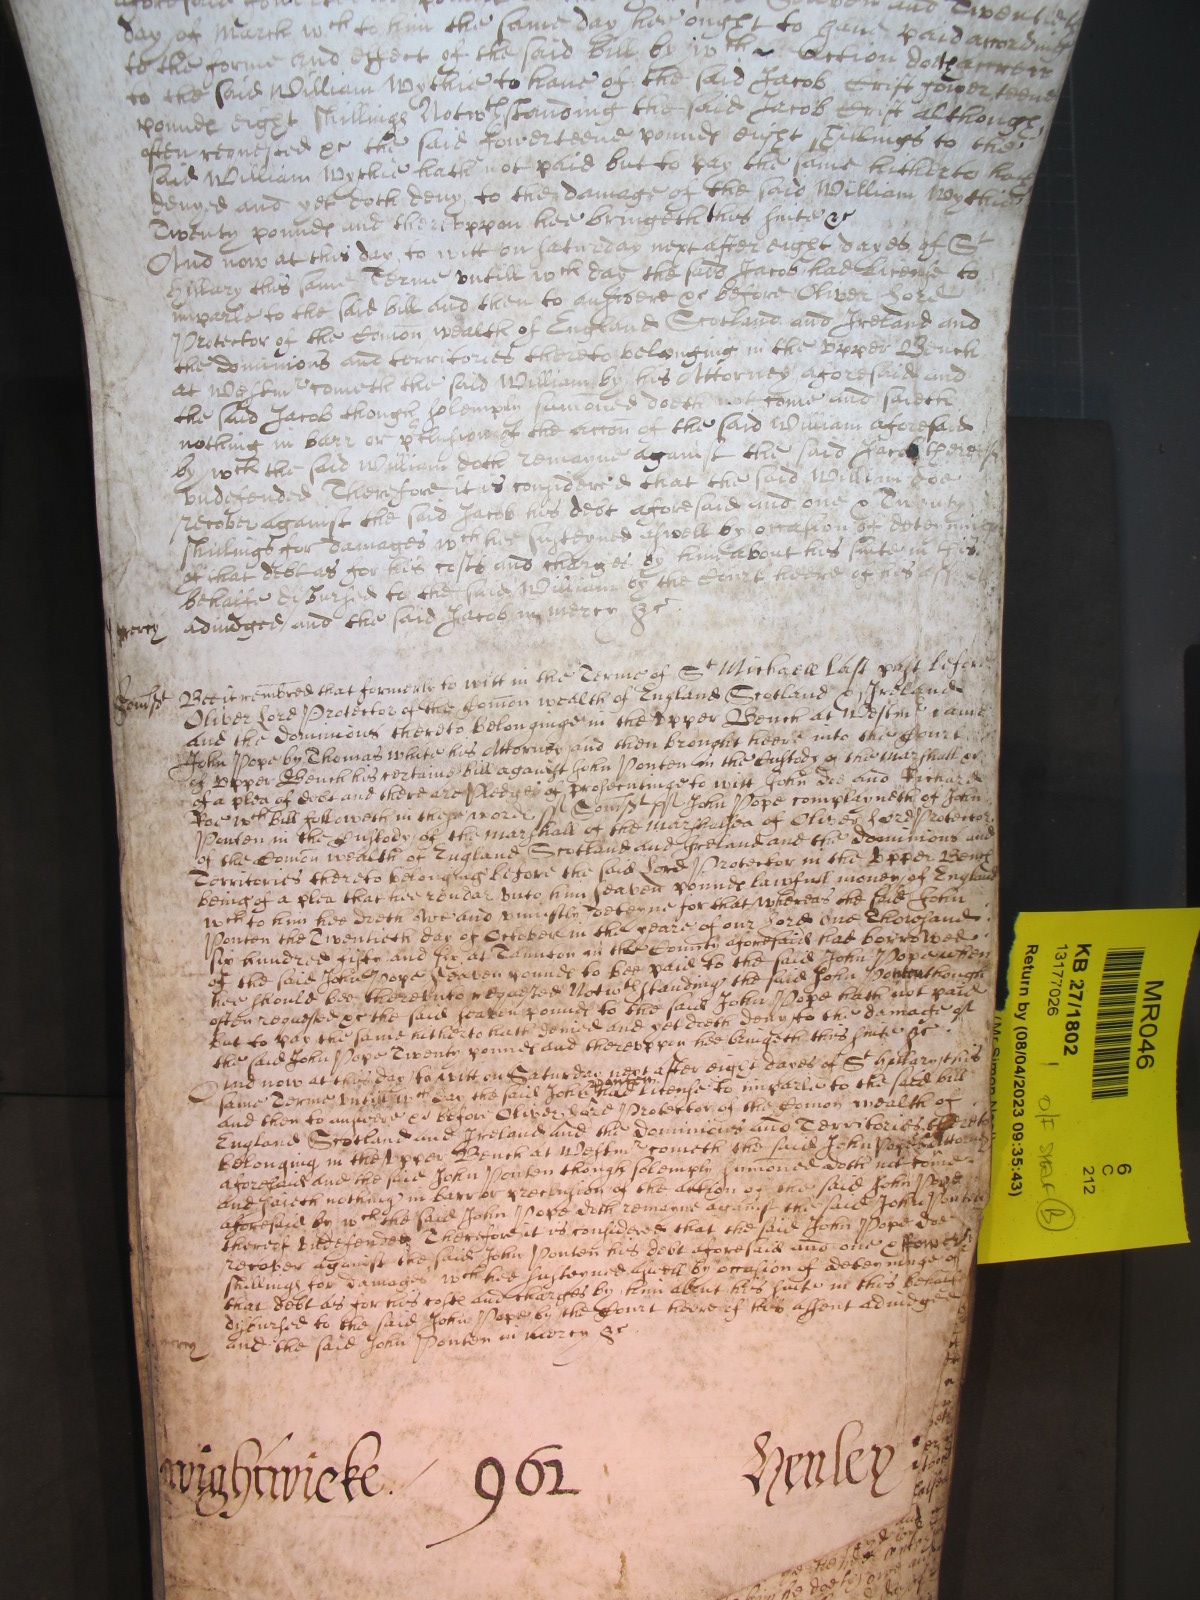 day of March wch to him the same day hee ought to have paid according
to the forme and effect of the said bill by wch action doth accrew
to the said William Wythie to have of the said Jacob Crift fowerteene
pounds eight shillings Notwthstanding the said Jacob Crift although
often requested &c the said fowerteene pounds eight shillings to the
said William Wythie hath not paid but to pay the same hitherto hath
denyed and yet doth deny to the damage of the said William Wythie
Twenty pounds and thereuppon hee bringeth this suite &c
And now at this day to witt on Saturday next after eight dayes of St
Hillary this same Terme untill wch day the said Jacob had License to
imparle to the said bill and then to answere &c before Oliver Lord
Protector of the Comon wealth of England Scotland and Ireland and
the dominions and territories thereto belonging in the Upper Bench
at Westmr cometh the said William by his Attorney aforesaid and
the said Jacob though solemply sumoned doeth not come and saieth
nothing in barr or of the accon of the said William aforesaid
by wch the said William doth remayne against the said Jacob thereof
undefended Therefore it is considered that the said William doe
recover against the said Jacob his debt aforesaid and one & Twenty
shillings for damages wch hee susteyned aswell by occasion of
of that debt as for his costs and charges by him about his suite in this
behalfe disbursed to the said William by the Court heere of his
mercy adiudged and the said Jacob in mercy &c
Somst Bee it remembred that formerly to witt in the Terme of St Michaell last past before
Oliver Lord Protector of the Comon wealth of England Scotland & Ireland
and the dominions thereto belonginge in the Upper Bench at Westmr came
John Pope by Thomas White his Attorney and then brought heere into the Court
of Upper Bench his certaine bill against John Ponten in the Custody of the Marshall &c
of a plea of debt and there are Pledges of prosecutinge to witt John Doe and Richard
Roe wch bill followeth in these words ss Somst ss John Pope complayneth of John
Ponten in the Custody of the Marshall of the Marshalsea of Oliver Lord Protector
of the Comon wealth of England Scotland and Ireland and the dominions and
Territories thereto belonging before the said Lord Protector in the Upper Bench
being of a plea that hee render unto him seaven pounds lawfull money of England
wch to him hee oweth and uniustly deteyne for that whereas the said John
Ponten the Twentieth day of October in the yeare of our Lord One Thowsand
six hundred fifty and six at Taunton in the County aforesaid had borrowed
of the said John Pope seaven pounds to bee paid to the said John Pope when
hee should bee thereunto requested Notwthstanding the said John Ponten though
often requested &c the said seaven pounds to the said John Pope hath not paid
but to pay the same hitherto hath denied and yet doth deny to the damage of
the said John Pope Twenty pounds and thereuppon hee bringeth this suite &c
And now at this day to witt on Saturday next after eight dayes of St Hillary this
same Terme untill wch day the said John Ponten had License to imparle to the said bill
and then to answere &c before Oliver Lord Protector of the Comon wealth of
England Scotland and Ireland and the dominions and Territories thereto
belonging in the Upper Bench at Westmr cometh the said John Pope by Attorney
aforesaid and the said John Ponten though solemply sumoned doth not come
and saieth nothing in barr or preclusion of the action of the said John Pope
aforesaid by wch the said John Pope doth remayne against the said John Ponten
thereof undefended Therefore it is considered that the said John Pope doe
recover against the said John Ponten his debt aforesaid and one & fower
shillings for damages wch hee susteyned aswell by occasion of deteyninge of
that debt as for his costs and charges by him about his suite in this behalfe
disbursed to the said John Pope by the Court heere of his assent adiudged
mercy and the said John Ponten in mercy &c
wightwicke 962 Henley
MR046
6
C
212
KB 27/1802
13177026
O/F SHELF B
Return by (08/04/2023 09:35:43)